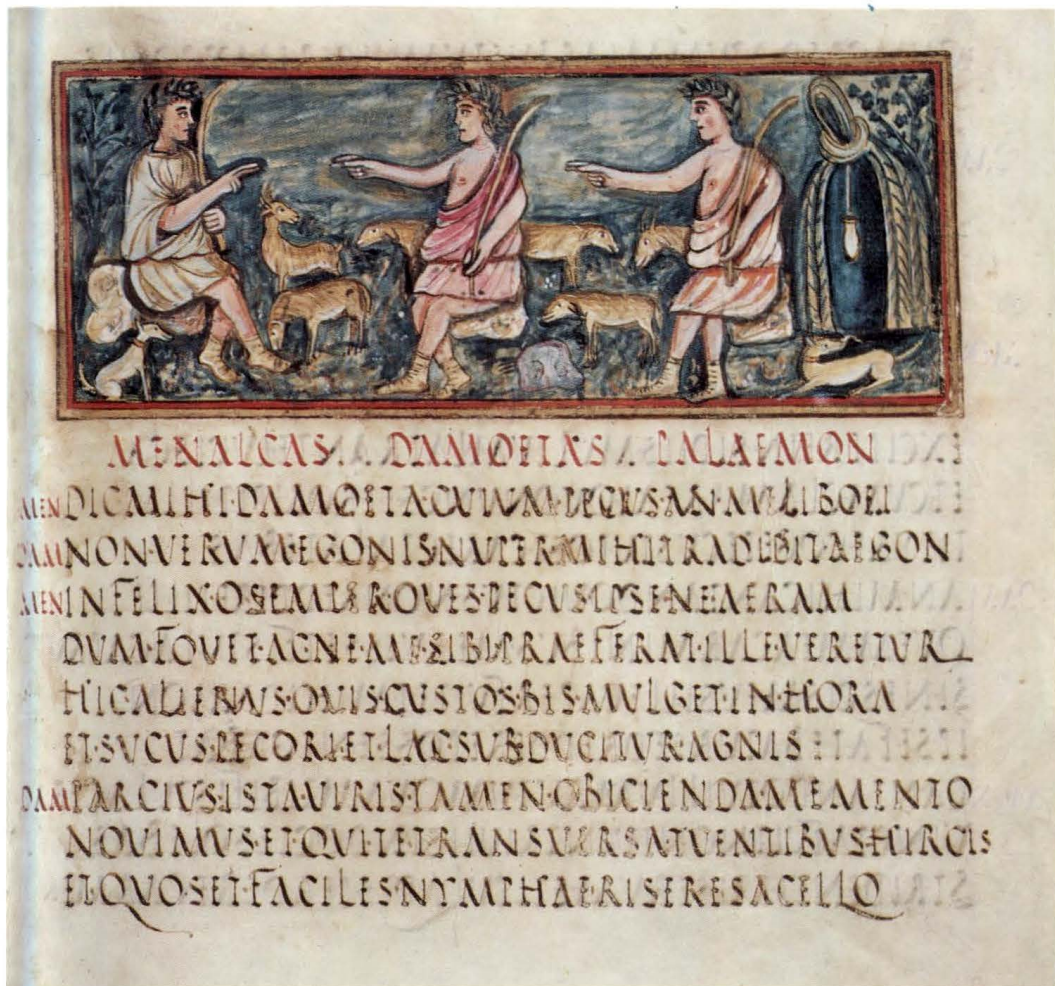 MENALCAS · DAMOETAS · PALAEMON
MEN DIC·MIHI·DAMOETA·CUIUM·PECUS·AN·MELIBOEI
DAM NON·VERUM·EGONIS·NUPER·MIHI·TRADEDIT·AEGON
MEN INFELIX·O·SEMPER·OVES·PECUS·IPSE·NEAERAM
DUM·FOVET·AC·NE·ME·SIBI·PRAEFERAT·ILLE·VERETUR
HIC·ALIENUS·OVIS·CUSTOS·BIS·MULGET·IN·HORA
ET·SUCUS·PECORI·ET·LAC·SUBDUCITUR·AGNIS
DAM PARCIUS·ISTA·VIRIS·TAMEN·OBICIENDA·MEMENTO
NOVIMUS·ET·QUI·TE·TRANSVERSA·TUENTIBUS·HIRCIS
ET·QUO·SET·FACILES·NYMPHAE·RISERE·SACELLO